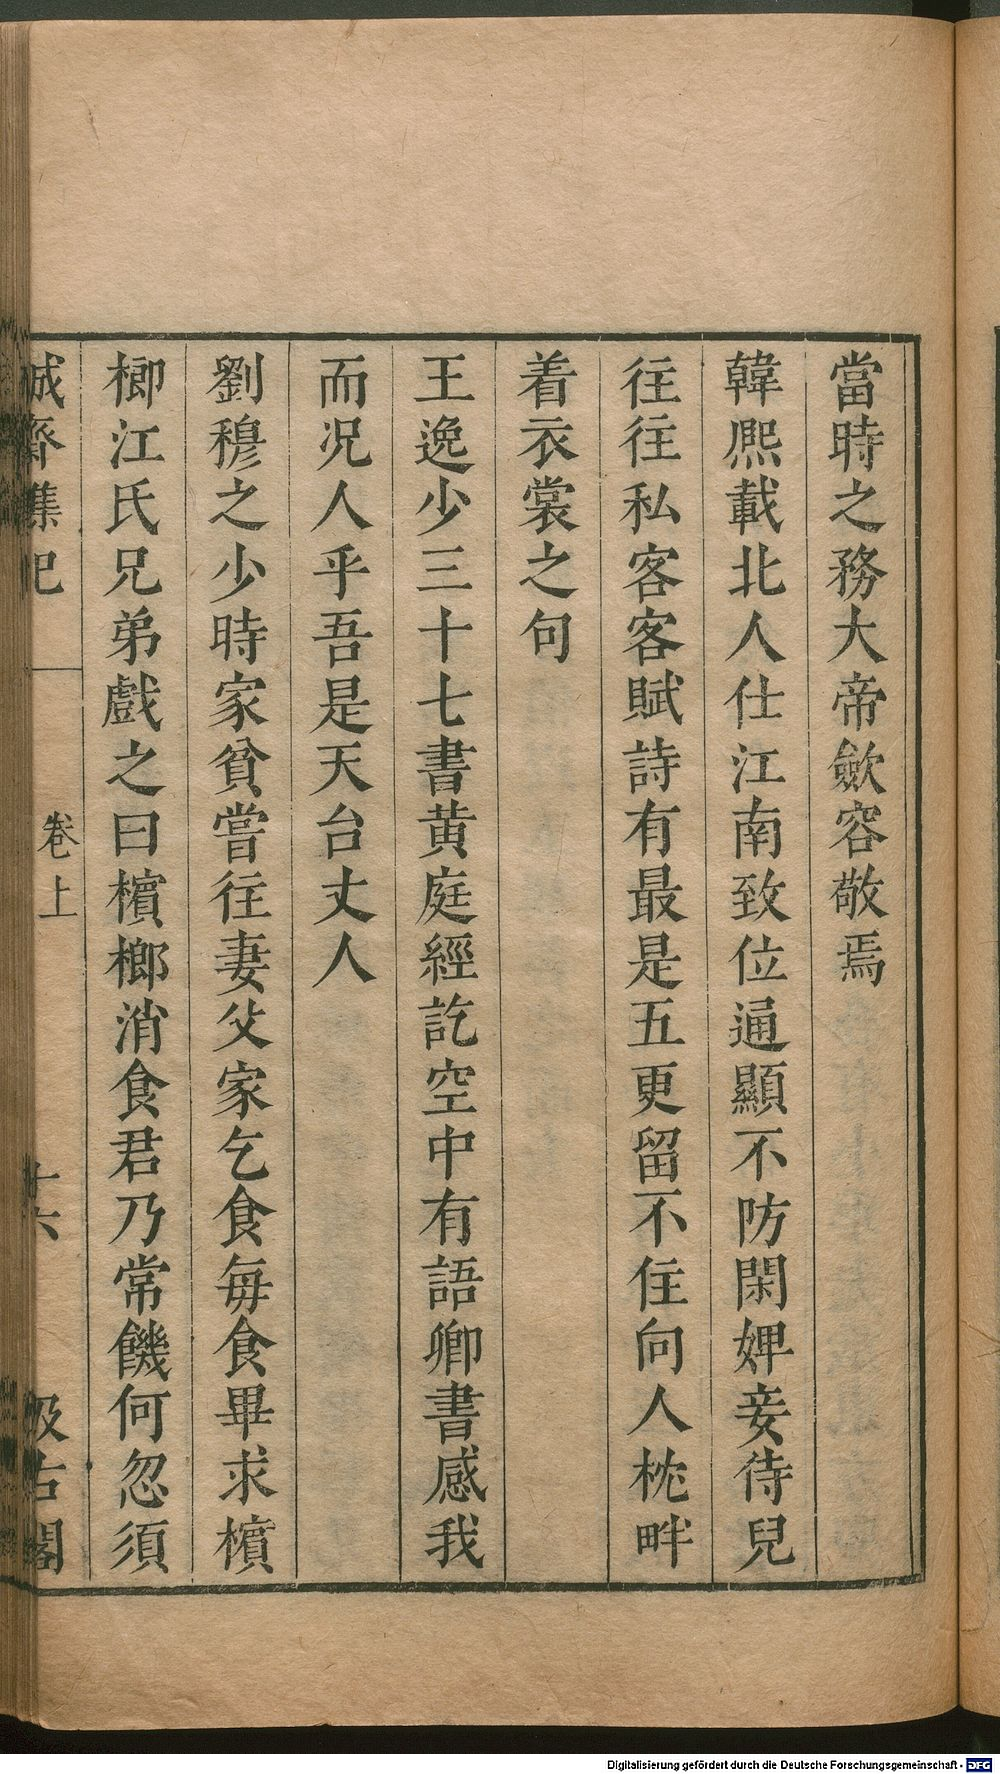 當時之務大帝歛容敬焉
韓熈載北人仕江南致位通顯不防閑婢妾待兒
往往私客客賦詩有最是五更留不住向人枕畔
着衣裳之句
王逸少三十七書黄庭經訖空中有語卿書感我
而况人乎吾是天台丈人
劉穆之少時家貧嘗往妻父家乞食每食畢求檳
榔江氏兄弟戲之曰檳榔消食君乃常饑何忽須
誠齋集记
卷上
十六
汲古閣
Digitalisierung gefördert durch die Deutsche Forschungsgemeinschaft - DFG